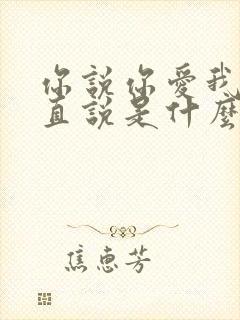 你說你愛我
直說是什麼
焦惠芳